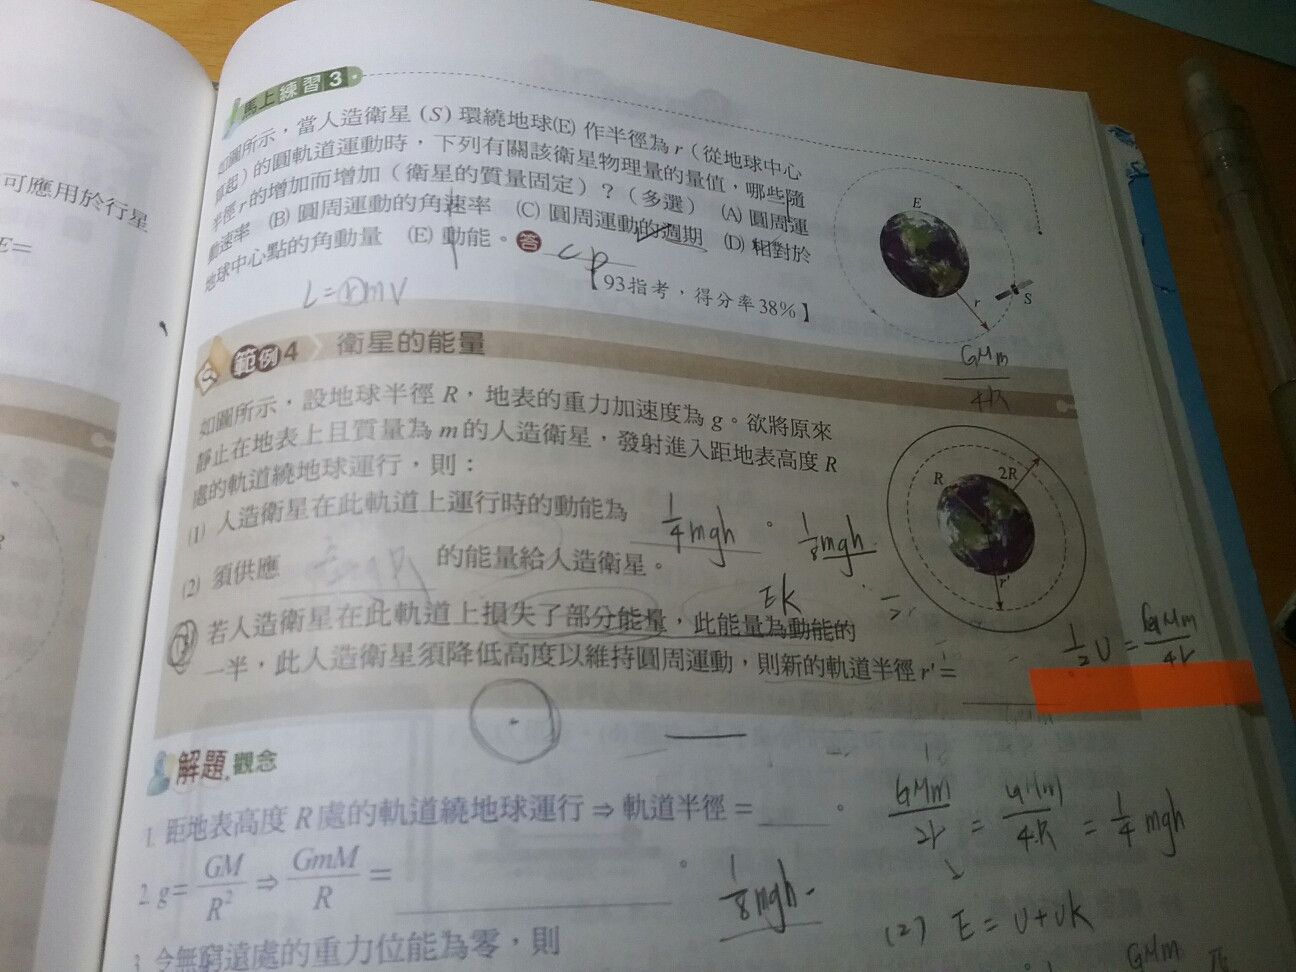 馬上練習3
如圖所示，當人造衛星 (S) 環繞地球(E) 作半徑為 r（從地球中心
算起）的圓軌道運動時，下列有關該衛星物理量的量值，哪些隨
半徑 r 的增加而增加（衛星的質量固定）？（多選） (A) 圓周運
動速率 (B) 圓周運動的角速率 (C) 圓周運動的週期 (D) 相對於
地球中心點的角動量 (E) 動能。答 CD
【93指考，得分率38%】
L=rmv
E
r
S
可應用於行星
E=
範例4 衛星的能量
GMm
4R
如圖所示，設地球半徑 R，地表的重力加速度為 g。欲將原來
靜止在地表上且質量為 m 的人造衛星，發射進入距地表高度 R
處的軌道繞地球運行，則：
(1) 人造衛星在此軌道上運行時的動能為 1/4 mgh 。 1/8 mgh
(2) 須供應 的能量給人造衛星。
EK
(3) 若人造衛星在此軌道上損失了部分能量，此能量為動能的
一半，此人造衛星須降低高度以維持圓周運動，則新的軌道半徑 r'=
R
2R
r'
1/2 U = GMm/4r
解題 觀念
1. 距地表高度 R 處的軌道繞地球運行 ⇒ 軌道半徑 = 。
2. g = GM/R² ⇒ GmM/R = 。
3. 令無窮遠處的重力位能為零，則
GMm/2r = GMm/4R = 1/4 mgh
1/8 mgh
(2) E = U + UK
GMm